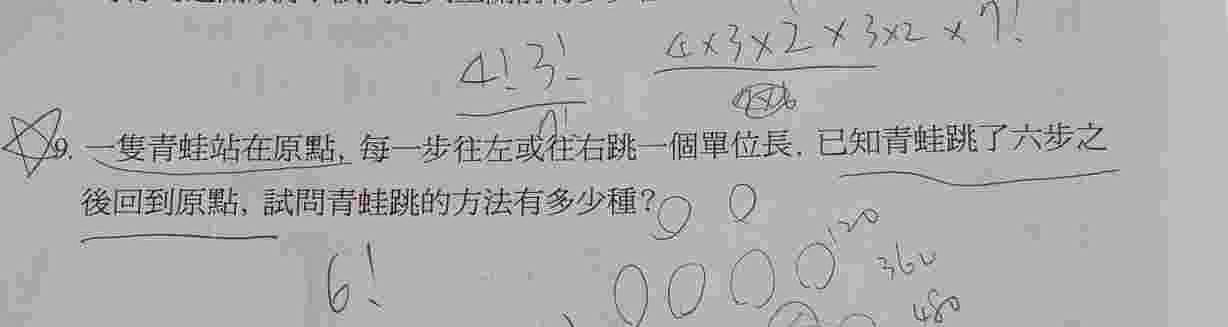 4!3! 4×3×2×3×2×7!
7!
9. 一隻青蛙站在原點, 每一步往左或往右跳一個單位長. 已知青蛙跳了六步之
後回到原點, 試問青蛙跳的方法有多少種?
120
360
6!
480